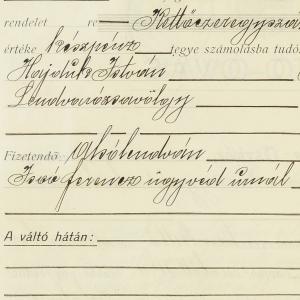 rendelet re — Kettőezeregyszáz
értéke készpénz tegye számolásba tudó
Hajduk István
Lendvarózsavölgy
Fizetendő Alsólendván
Isoó ferencz ügyvéd urnál
A váltó hátán: